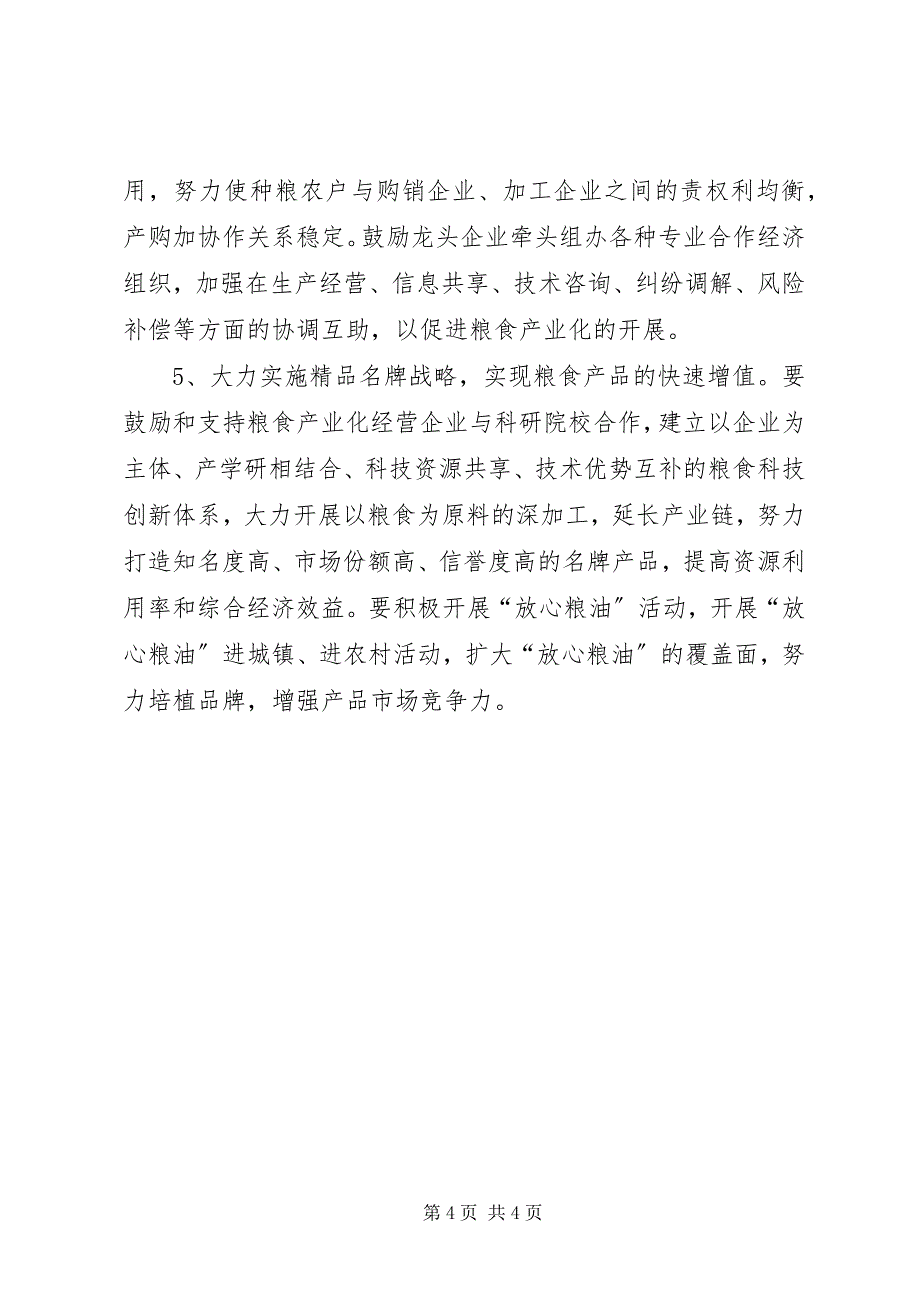 用，努力使种粮农户与购销企业、加工企业之间的责权利均衡，
产购加协作关系稳定。鼓励龙头企业牵头组办各种专业合作经济
组织，加强在生产经营、信息共享、技术咨询、纠纷调解、风险
补偿等方面的协调互助，以促进粮食产业化的开展。
5、大力实施精品名牌战略，实现粮食产品的快速增值。要
鼓励和支持粮食产业化经营企业与科研院校合作，建立以企业为
主体、产学研相结合、科技资源共享、技术优势互补的粮食科技
创新体系，大力开展以粮食为原料的深加工，延长产业链，努力
打造知名度高、市场份额高、信誉度高的名牌产品，提高资源利
用率和综合经济效益。要积极开展“放心粮油〞活动，开展“放
心粮油〞进城镇、进农村活动，扩大“放心粮油〞的覆盖面，努
力培植品牌，增强产品市场竞争力。
第 4 页 共 4 页